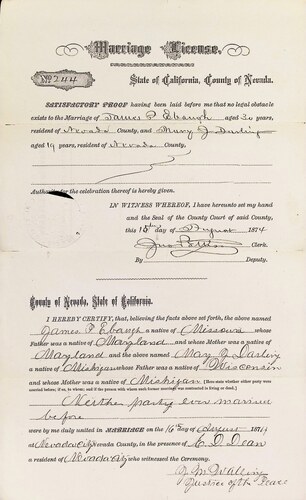 Marriage License.
No. 244
State of California, County of Nevada.
SATISFACTORY PROOF having been laid before me that no legal obstacle
exists to the Marriage of James P Ebaugh aged 30 years,
resident of Nevada County, and Mary J Darling
aged 19 years, resident of Nevada County,
Authority for the celebration thereof is hereby given.
IN WITNESS WHEREOF, I have hereunto set my hand
and the Seal of the County Court of said County,
this 15th day of August 1874
Jno Clerk.
By Deputy.
County of Nevada, State of California.
I HEREBY CERTIFY, that, believing the facts above set forth, the above named
James P Ebaugh a native of Missouri whose
Father was a native of Maryland and whose Mother was a native of
Maryland and the above named Mary J Darling
a native of Michigan whose Father was a native of Wisconsin
and whose Mother was a native of Michigan
Neither party ever married
before
were by me duly united in MARRIAGE on the 16th day of August 1874
at Nevada city Nevada County, in the presence of E. D. Dean
a resident of Nevada city who witnessed the Ceremony.
Justice of the Peace